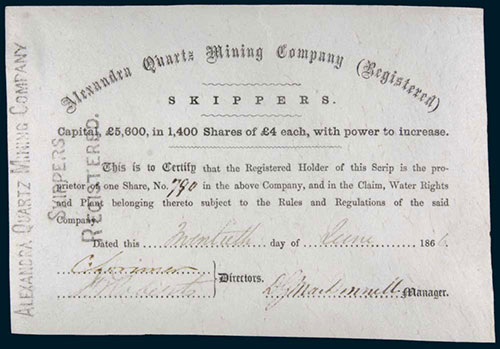 Alexandra Quartz Mining Company (Registered)
SKIPPERS.
Capital, £5,600, in 1,400 Shares of £4 each, with power to increase.
This is to Certify that the Registered Holder of this Scrip is the pro-
prietor of one Share, No. 790 in the above Company, and in the Claim, Water Rights
and Plant belonging thereto subject to the Rules and Regulations of the said
Company.
Dated this Twentieth day of June 1866.
Directors.
Manager.
ALEXANDRA QUARTZ MINING COMPANY
SKIPPERS
REGISTERED.